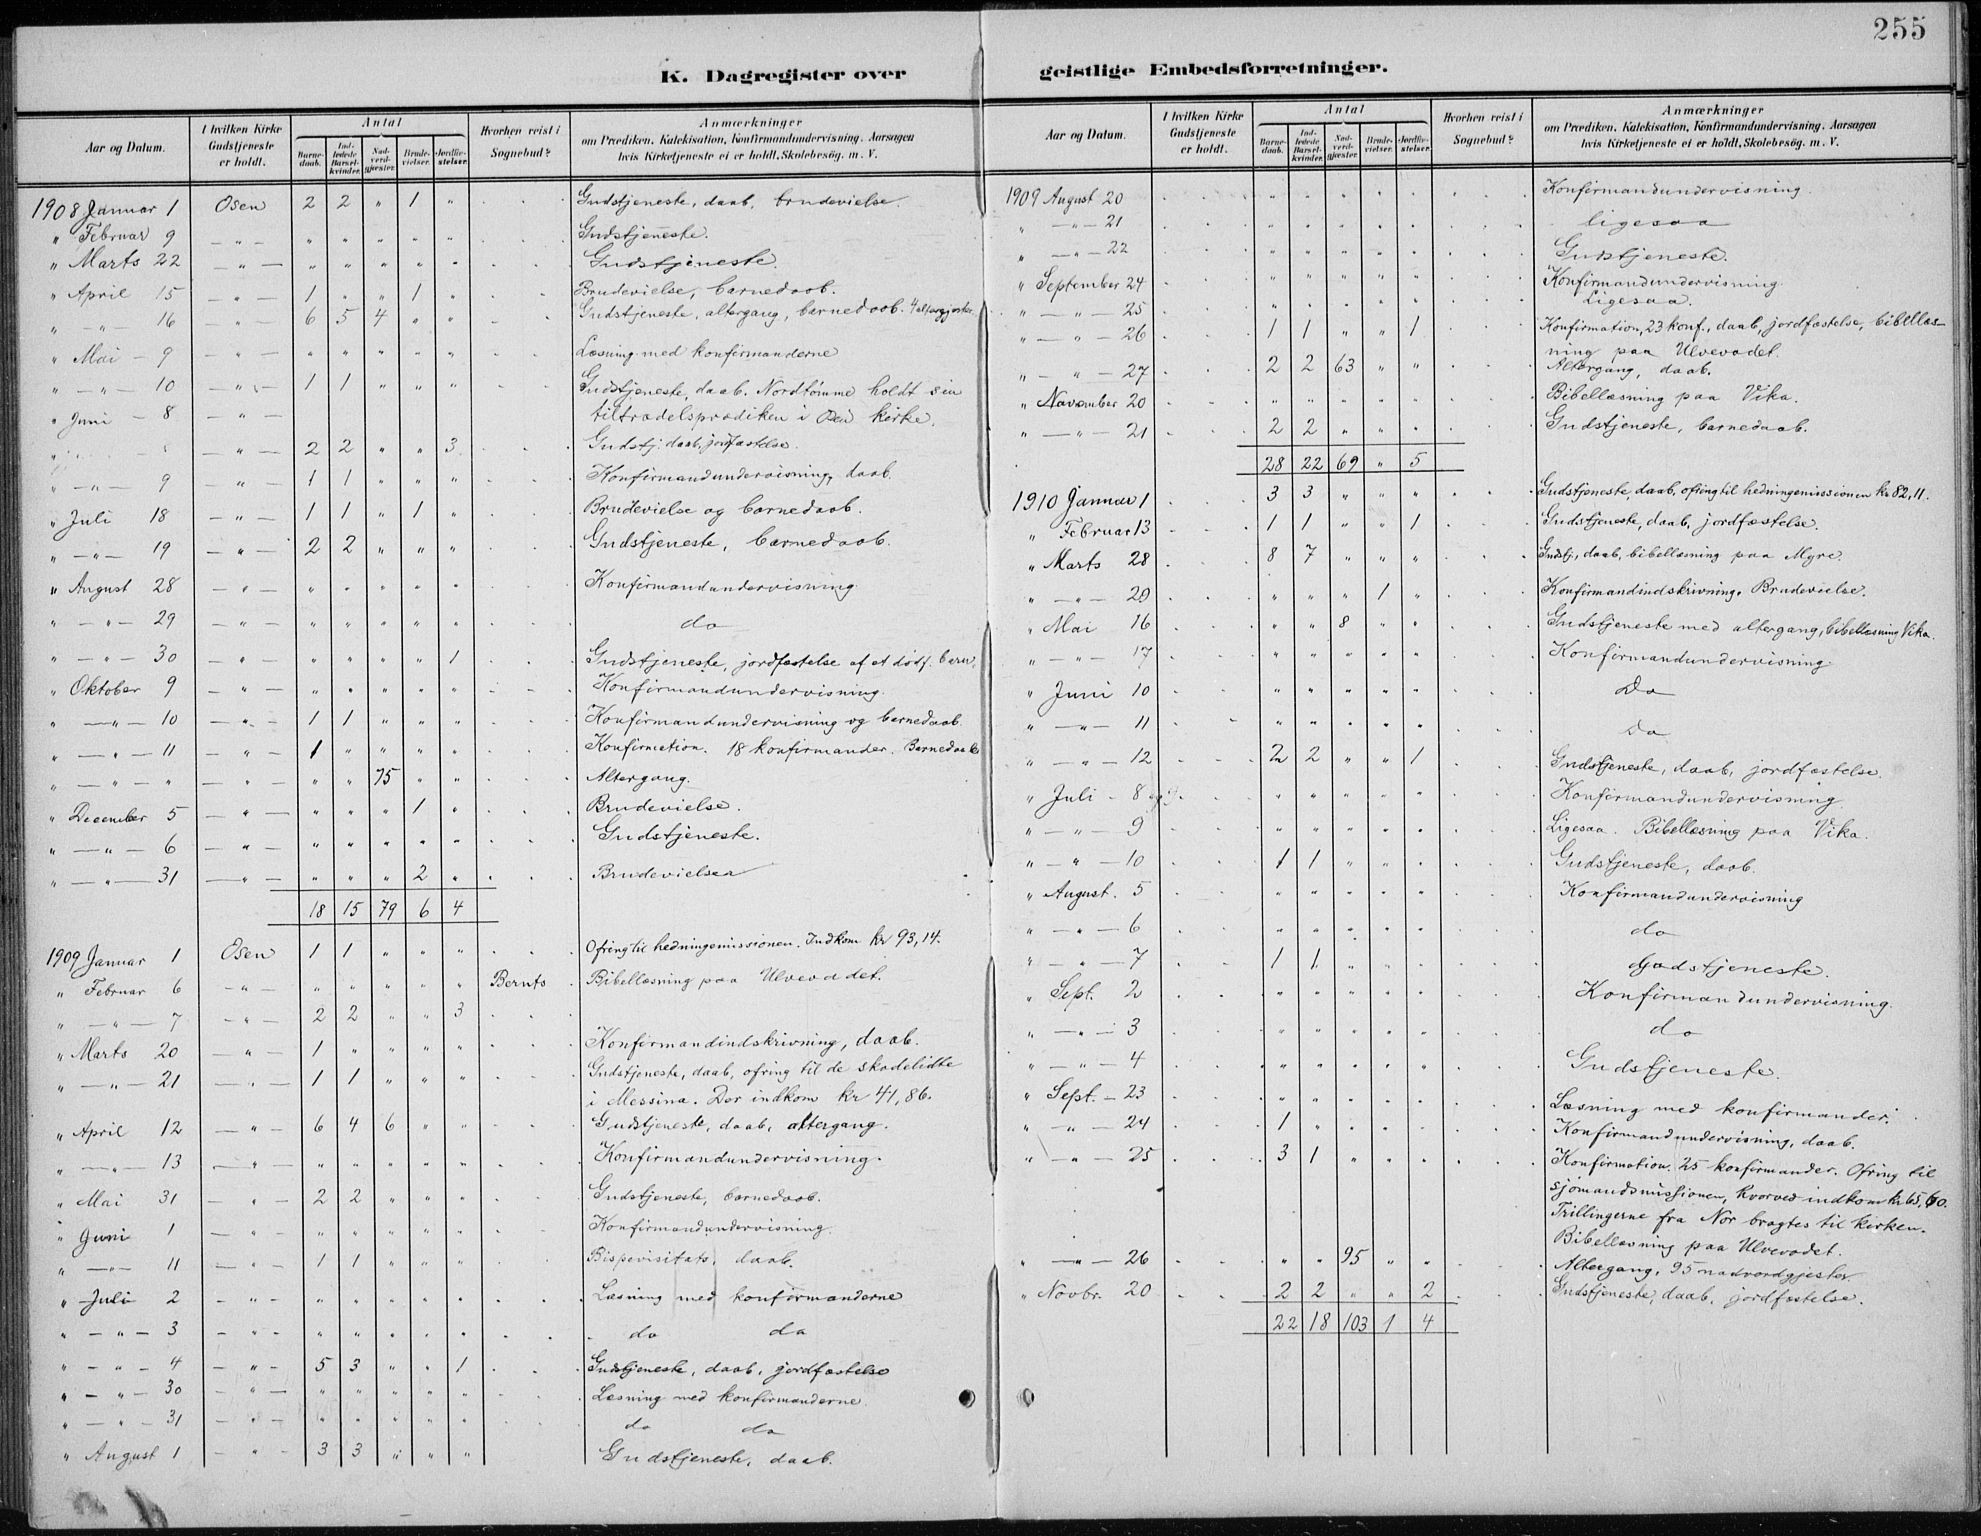 255
K. Dagregister over geistlige Embedsforretninger.
Aar og Datum. | I hvilken Kirke Gudstjeneste er holdt. | Antal | Barnedaab. | Indledede Barselkvinder. | Nadverdgjester. | Brudevielser. | Jordfæstelser. | Hvorhen reist i Sognebud? | Anmærkninger om Prædiken, Katekisation, Konfirmandundervisning, Aarsagen hvis Kirketjeneste ei er holdt, Skolebesög. m. V.
1908 Januar 1 Osen 2 2 " 1 " Gudstjeneste, daab, brudevielse.
" Februar 9 — " — " " " " " Gudstjeneste.
" Marts 22 — " — " " " " " Gudstjeneste.
" April 15 — " — 1 " " 1 " Brudevielse, barnedaab.
" — " — 16 — " — 6 5 4 " " Gudstjeneste, altergang, barnedaab. 4 altergjester.
" Mai — 9 — " — " " " " " Læsning med konfirmanderne
" — " — 10 — " — 1 1 " " " Gudstjeneste, daab. Nordtømme holdt sin
" Juni — 8 — " — tiltrædelsprædiken i Osen kirke.
— " — 2 2 " " 3 Gudstj. daab, jordfæstelse.
" — " — 9 — " — 1 1 " " " Konfirmandundervisning, daab.
" Juli 18 — " — 1 1 " 1 " Brudevielse og barnedaab.
" — " — 19 — " — 2 2 " " " Gudstjeneste, barnedaab.
" August 28 — " — " " " " " Konfirmandundervisning
" — " — 29 — " — " " " " " do
" — " — 30 — " — " " " " 1 Gudstjeneste, jordfæstelse af et dødf. barn.
" Oktober 9 — " — " " " " " Konfirmandundervisning.
" — " — 10 — " — 1 1 " " " Konfirmandundervisning og barnedaab.
" — " — 11 — " — 1 " " " " Konfirmation. 18 konfirmander. Barnedaab
" — " — " — " — " " 75 " " Altergang.
" December 5 — " — " " " 1 " Brudevielse.
" — " — 6 — " — " " " " " Gudstjeneste.
" — " — 31 — " — " " " 2 " Brudevielser
18 15 79 6 4
1909 Januar 1 Osen 1 1 " " " Ofring til hedningemissionen. Indkom kr 93,14.
" Februar 6 — " — " " " " " Bernts Bibellæsning paa Ulvevadet.
" — " — 7 — " — 2 2 " " 3
" Marts 20 — " — 1 " " " " Konfirmandindskrivning, daab.
" — " — 21 — " — 1 1 " " " Gudstjeneste, daab, ofring til de skadelidte
i Messina. Der indkom kr 41,86.
" April 12 — " — 6 4 6 " " Gudstjeneste, daab, altergang.
" — " — 13 — " — " " " " " Konfirmandundervisning.
" Mai 31 — " — 2 2 " " " Gudstjeneste, barnedaab.
" Juni 1 — " — " " " " " Konfirmandundervisning.
" — " — 11 — " — 1 1 " " " Bispevisitats, daab.
" Juli 2 — " — " " " " " Læsning med konfirmanderne
" — " — 3 — " — " " " " " do do
" — " — 4 — " — 5 3 " " 1 Gudstjeneste, daab, jordfæstelse
" — " — 30 — " — " " " " " Læsning med konfirmanderne.
" — " — 31 — " — " " " " " do do
" August 1 — " — 3 3 " " " Gudstjeneste, daab.
Aar og Datum. | I hvilken Kirke Gudstjeneste er holdt. | Antal | Barnedaab. | Indledede Barselkvinder. | Nadverdgjester. | Brudevielser. | Jordfæstelser. | Hvorhen reist i Sognebud? | Anmærkninger om Prædiken, Katekisation, Konfirmandundervisning, Aarsagen hvis Kirketjeneste ei er holdt, Skolebesög. m. V.
1909 August 20 " " " " " Konfirmandundervisning.
" — " — 21 " " " " " ligesaa
" — " — 22 " " " " " Gudstjeneste.
" September 24 " " " " " Konfirmandundervisning.
" — " — 25 " " " " " Ligesaa.
" — " — 26 1 1 " " 1 Konfirmation, 23 konf., daab, jordfæstelse, bibellæs-
ning paa Ulvevadet.
" — " — 27 2 2 63 " " Altergang, daab.
" November 20 " " " " " Bibellæsning paa Vika.
" — " — 21 2 2 " " " Gudstjeneste, barnedaab.
28 22 69 " 5
1910 Januar 1 3 3 " " " Gudstjeneste, daab, ofring til hedningemissionen kr 82,11.
" Februar 13 1 1 " " 1 Gudstjeneste, daab, jordfæstelse.
" Marts 28 8 7 " " " Gudstj, daab, bibellæsning paa Myre.
" — " — 29 " " " 1 " Konfirmandindskrivning. Brudevielse.
" Mai 16 " " 8 " " Gudstjeneste med altergang, bibellæsning Vika.
" — " — 17 " " " " " Konfirmandundervisning.
" Juni 10 " " " " " Do
" — " — 11 " " " " " Do
" — " — 12 2 2 " " 1 Gudstjeneste, daab, jordfæstelse.
" Juli — 8 " " " " " Konfirmandundervisning
" — " — 9 " " " " " Ligesaa. Bibellæsning paa Vika.
" — " — 10 1 1 " " " Gudstjeneste, daab.
" August. 5 " " " " " Konfirmandundervisning
" — " — 6 " " " " " do
" — " — 7 1 1 " " " Gudstjeneste.
" Sept. 2 " " " " " Konfirmandundervisning.
" — " — 3 " " " " " do
" — " — 4 " " " " " Gudstjeneste.
" Sept. — 23 " " " " " Læsning med konfirmander.
" — " — 24 1 " " " " Konfirmandundervisning, daab.
" — " — 25 3 1 " " " Konfirmation. 25 konfirmander. Ofring til
sjømandsmissionen, hvorved indkom kr 65,60.
Trillingerne fra Nor bragtes til kirken.
Bibellæsning paa Ulvevadet.
" — " — 26 " " 95 " " Altergang, 95 nadverdgjester.
" Novbr. 20 2 2 " " 2 Gudstjeneste, daab, jordfæstelse.
22 18 103 1 4